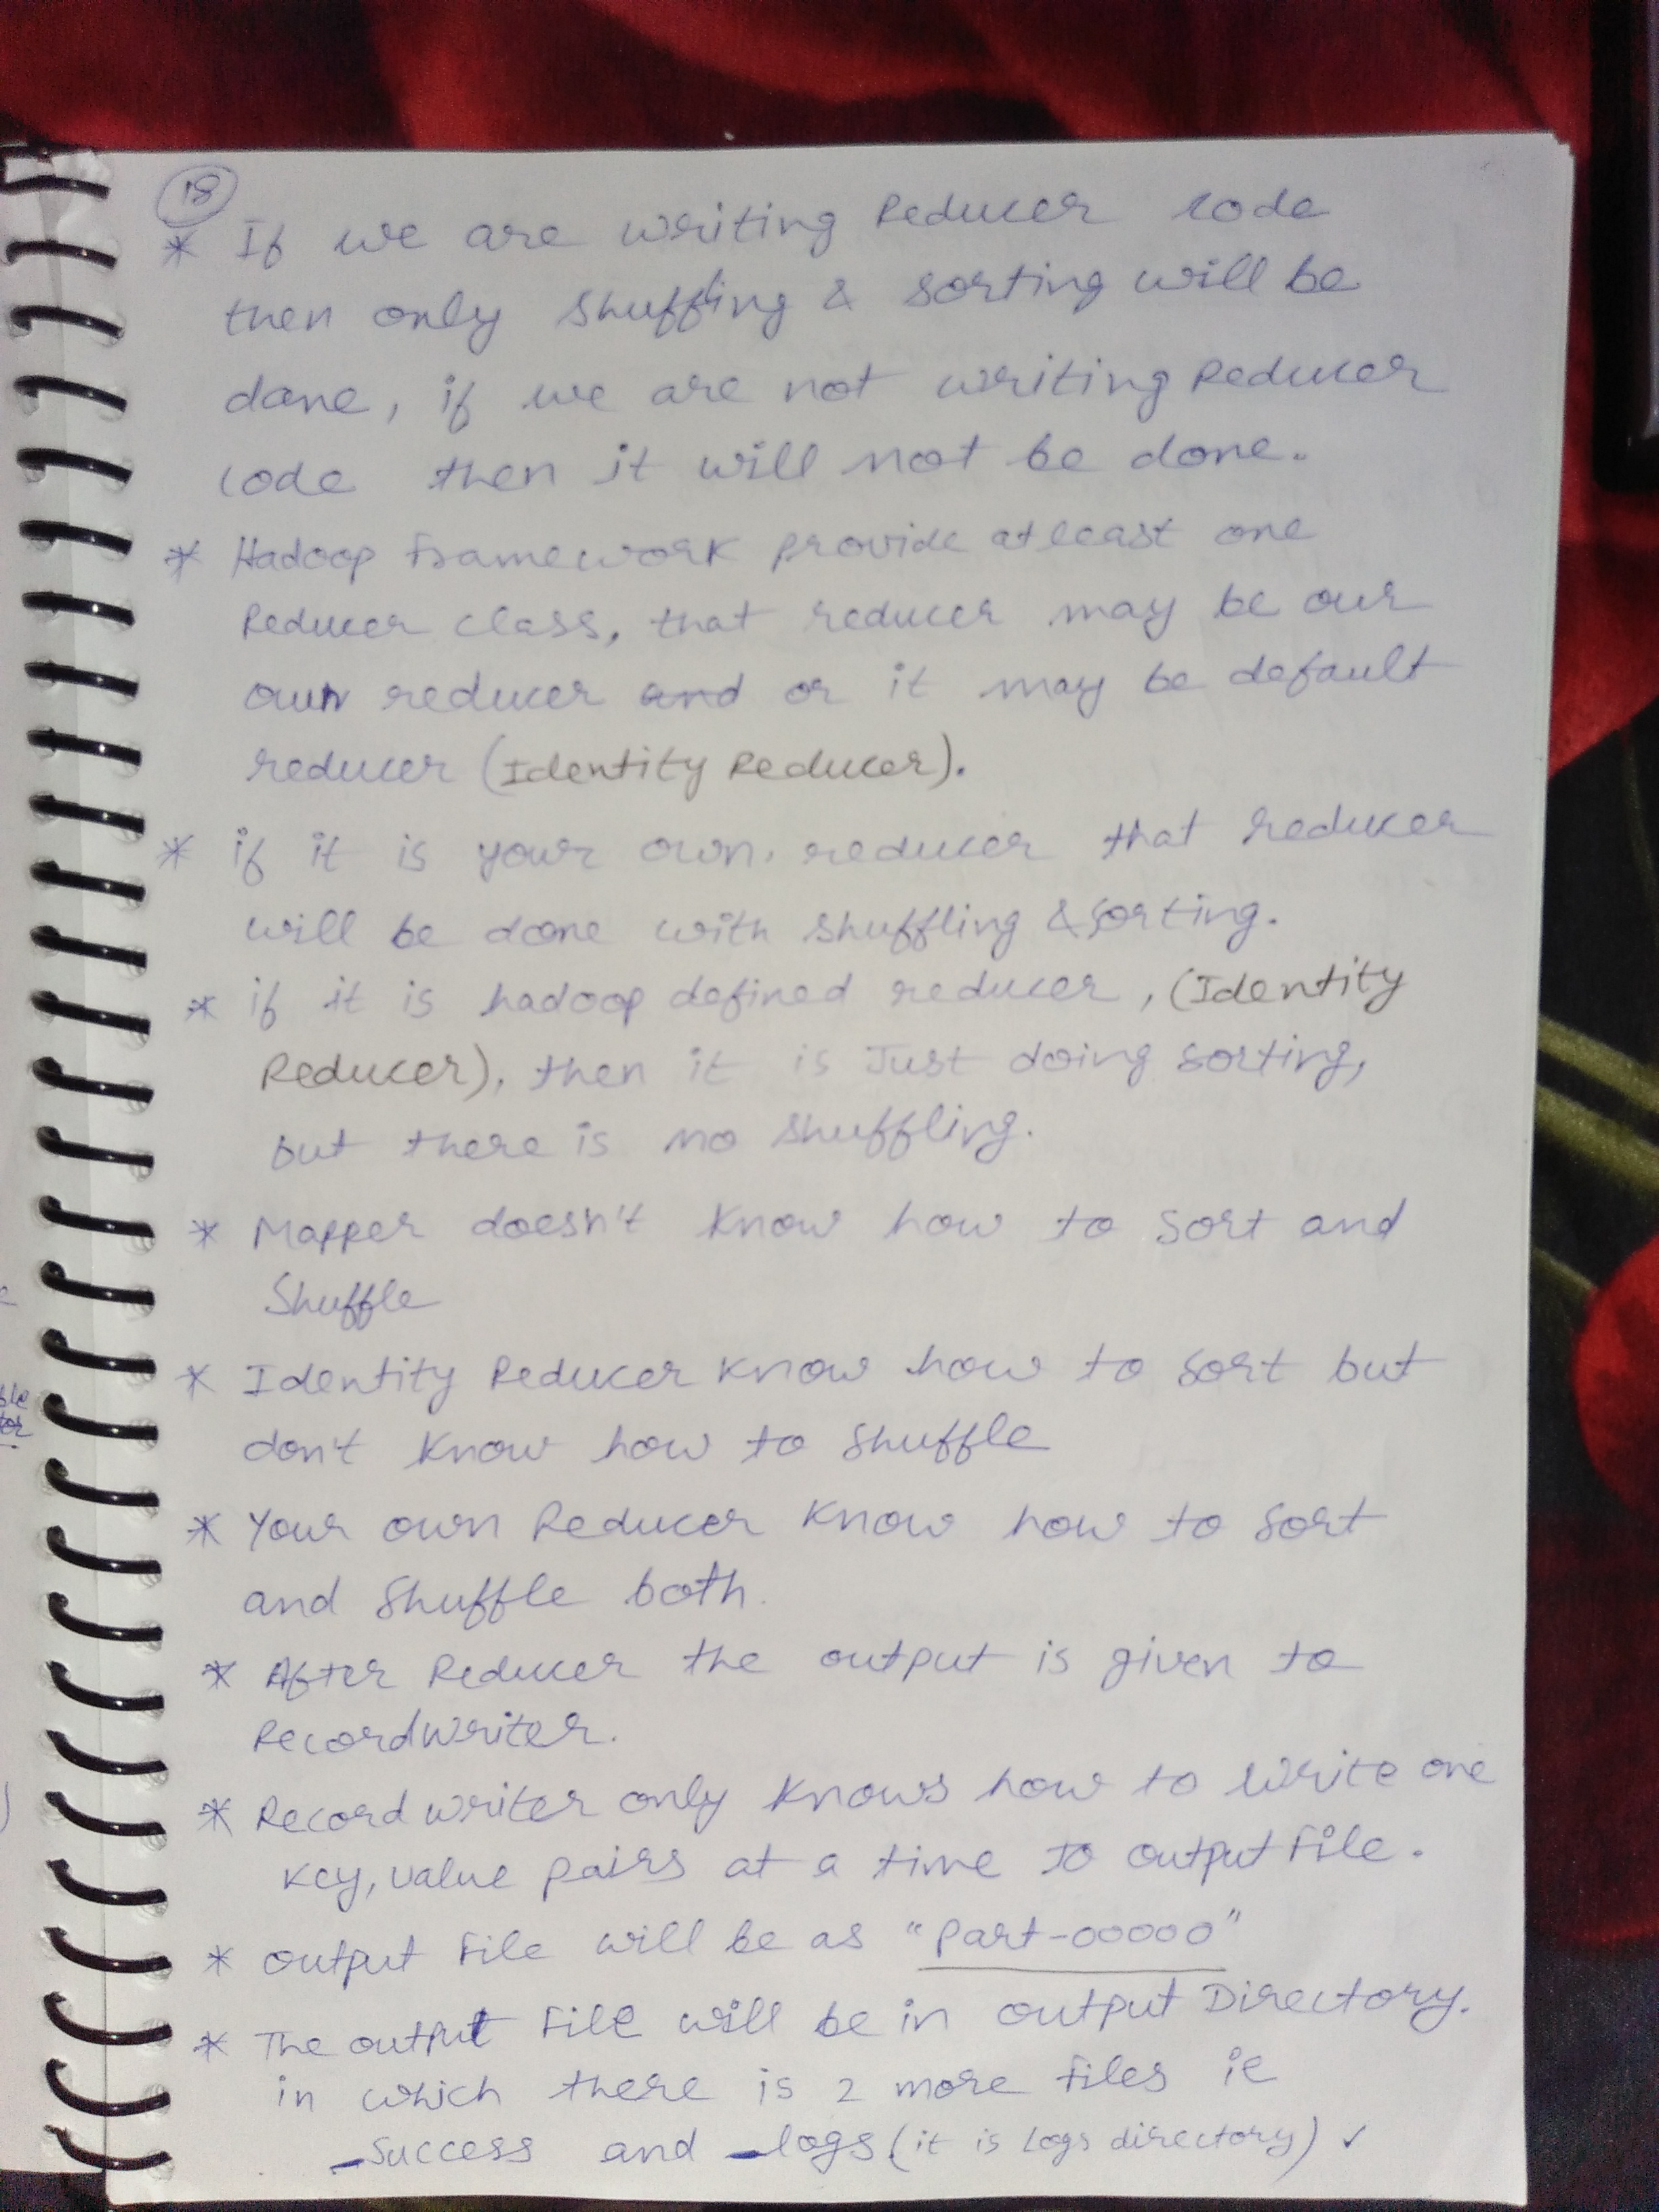 18
* If we are writing Reducer code
then only shuffling & sorting will be
done, if we are not writing Reducer
code then it will not be done.
* Hadoop Framework provide atleast one
Reducer class, that reducer may be our
own reducer and or it may be default
reducer (Identity Reducer).
* if it is your own. reducer that reducer
will be done with shuffling & sorting.
* if it is hadoop defined reducer, (Identity
Reducer), then it is Just doing sorting,
but there is no shuffling.
* Mapper doesn't know how to sort and
Shuffle
* Identity Reducer know how to sort but
don't know how to shuffle
* Your own Reducer know how to sort
and shuffle both.
* After Reducer the output is given to
RecordWriter.
* Record writer only knows how to write one
key, value pairs at a time to output file.
* output file will be as "part-00000"
* The output file will be in output Directory.
in which there is 2 more files ie
_success and _logs (it is logs directory) ✓
ble
tor